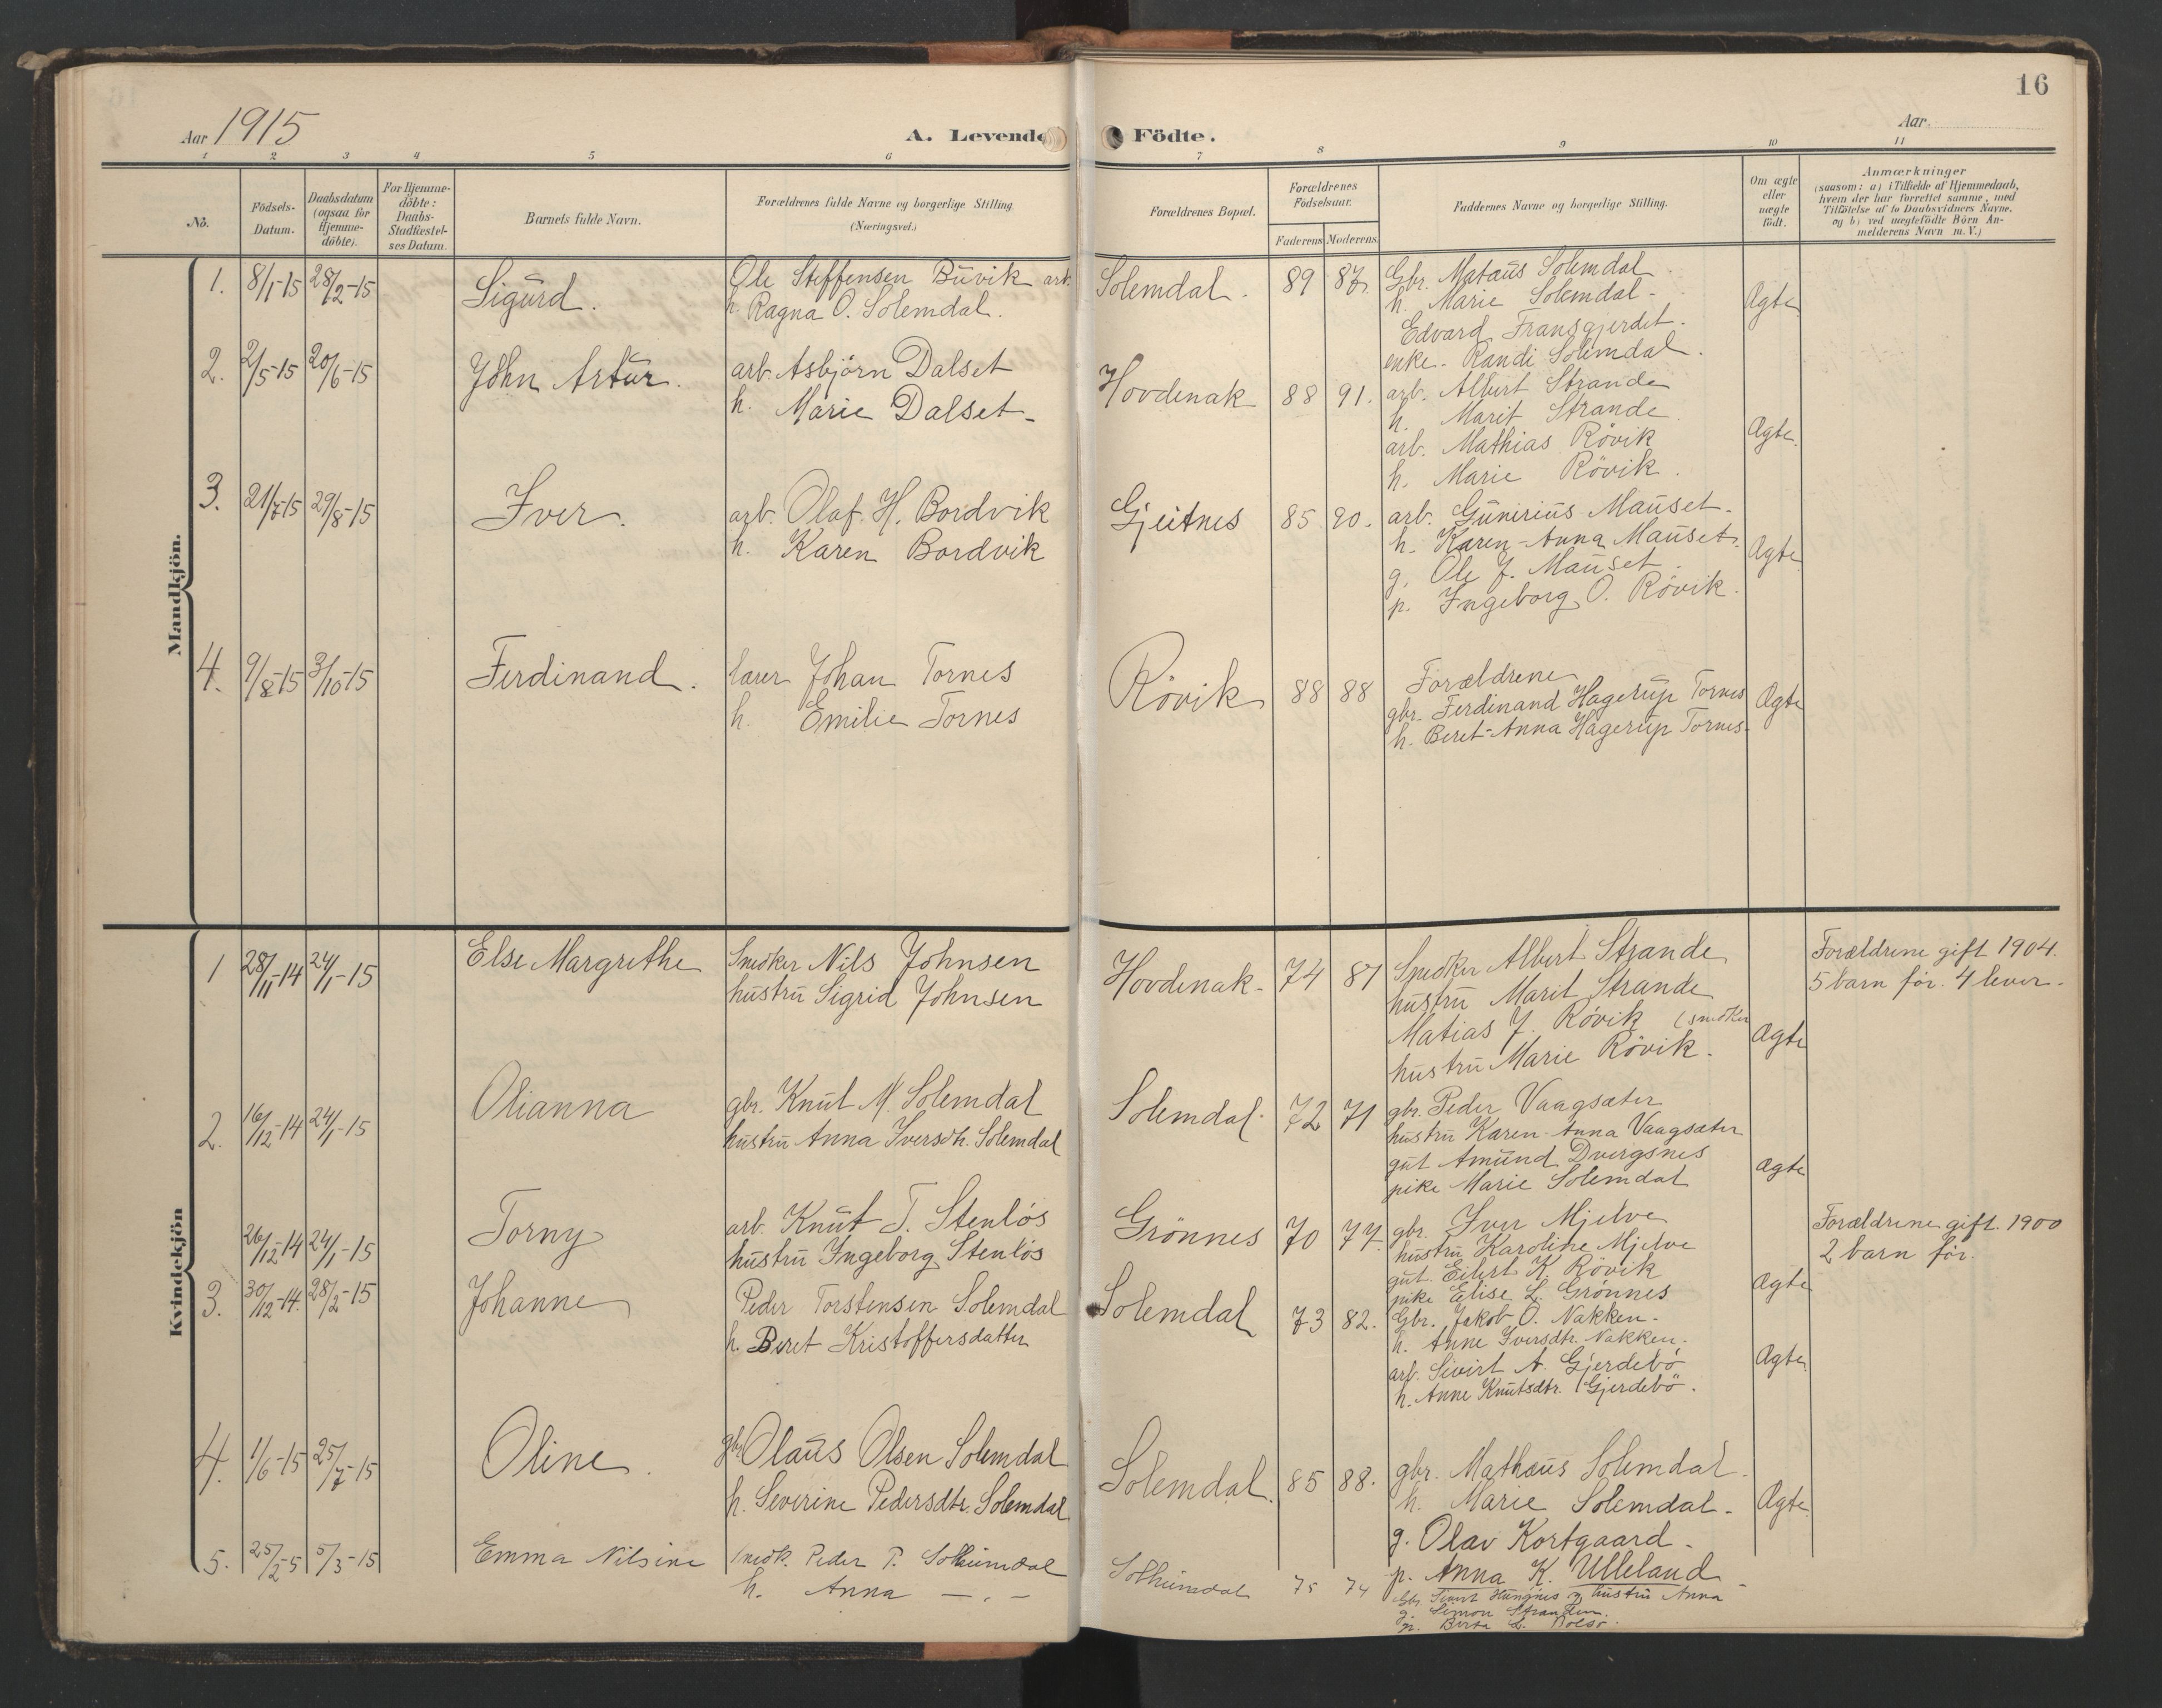 16
Aar 1915
A. Levende Födte.
Aar.
1 2 3 4 5 6 7 8 9 10 11
No.
Födsels-
Datum.
Daabsdatum
(ogsaa for
Hjemme-
döbte).
For Hjemme-
döbte:
Daabs-
Stadfæstel-
ses Datum.
Barnets fulde Navn.
Forældrenes fulde Navne og borgerlige Stilling
(Næringsvei.)
Forældrenes Bopæl.
Forældrenes
Födselsaar.
Faderens Moderens
Faddernes Navne og borgerlige Stilling.
Om ægte
eller
uægte
födt.
Anmærkninger
(saasom: a) i Tilfælde af Hjemmedaab,
hvem der har forrettet samme, med
Tilföielse af to Daabsvidners Navne,
og b) ved uægtefödte Börn An-
melderens Navn m. V.)
Mandkjön.
1. 8/1-15 28/2-15 Sigurd.
Ole Steffensen Buvik arb.
h. Ragna O. Solemdal.
Solemdal. 89 87.
Gbr. Mataus Solemdal
h. Marie Solemdal-
Edvard Fransgjerdet.
enke. Randi Solemdal.
Ægte
2. 2/5-15 20/6-15 John Artur.
arb. Asbjörn Dalset
h. Marie Dalset-
Hovdenak 88 91.
arb. Albert Strande
h. Marit Strande
arb. Mathias Rövik
h. Marie Rövik.
Ægte.
3. 21/7-15 29/8-15 Iver.
arb. Olaf H. Bordvik
h. Karen Bordvik
Gjeitnes 85 90.
arb. Gunerius Mauset-
h. Karen-Anna Mauset.
g. Ole J. Mauset.
p. Ingeborg O. Rövik.
Ægte
4. 9/8-15 3/10-15 Ferdinand.
lærer Johan Tornes
h. Emilie Tornes
Rövik 88 88
Forældrene
gbr. Ferdinand Hagerup Tornes
h. Beret-Anna Hagerup Tornes-
Ægte
Kvindekjön
1 28/11-14 24/1-15 Else Margrethe
Snedker Nils Johnsen
hustru Sigrid Johnsen
Hovdenak- 74 81
Snedker Albert Strande
hustru Marit Strande
Matias J. Rövik (snedker
hustru Marie Rövik.
Ægte
Forældrene gift 1904.
5 barn för. 4 lever.
2. 16/12-14 24/1-15 Olianna
gbr. Knut M. Solemdal
hustru Anna Iversdtr. Solemdal
Solemdal. 72 71
gbr. Peder Vaagsæter
hustru Karen-Anna Vaagsæter
gut Amund Dvergsnes
pike Marie Solemdal
Ægte
26/12-14 24/1-15 Torny
arb. Knut T. Stenlös
hustru Ingeborg Stenlös
Grönnes 70 77.
gbr. Iver Mjelve
hustru Karoline Mjelve
gut. Eilert K. Rövik
pike Elise L. Grönnes
Ægte
Forældrene gift. 1900
2 barn för.
3. 30/12-14. 28/2-15 Johanne
Peder Torstensen Solemdal
h. Beret Kristoffersdatter
Solemdal 73 82.
Gbr. Jakob O. Nakken-
h. Anne Iversdtr. Nakken.
arb. Sivert A. Gjerdebö
h. Anne Knutsdtr. Gjerdebö.
Ægte
4. 1/6-15 25/7-15 Oline.
gbr. Olaus Olsen Solemdal
h. Severine Pedersdtr. Solemdal
Solemdal. 85 88.
gbr. Mathæus Solemdal.
h. Marie Solemdal-
g. Olav Kortgaard-
p. Anna K. Ulleland-
Ægte
5. 25/2-5 5/3-15 Emma Nilsine
snedk. Peder P. Solheimdal
h. Anna -.-
Solheimdal 75 74
Gbr. Sivert Hungnes og hustru Anna
g. Simon
p. Berta L. Bolsö.